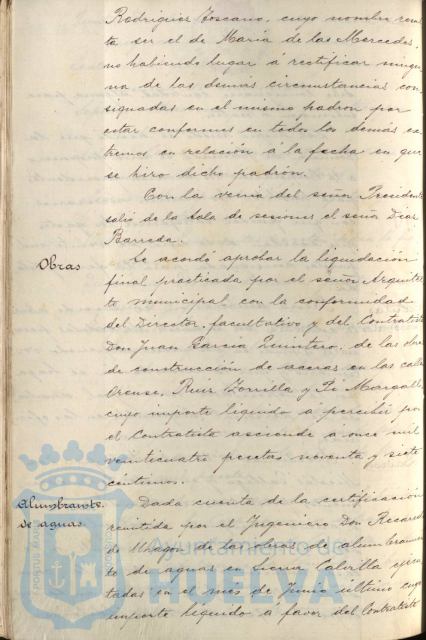 Rodriguez Toscano, cuyo nombre resul
ta ser el de Maria de las Mercedes,
no habiendo lugar á rectificar ningu
na de las demás circunstancias con
signadas en el mismo padron por
estar conformes en todos los demás ex
tremos en relación á la fecha en que
se hizo dicho padrón.
Con la venia del señor Presidente
salió de la Sala de sesiones el señor Diaz
Barreda.
Obras
Se acordó aprobar la liquidación
final practicada por el señor Arquitec
to municipal con la conformidad
del Director facultativo y del Contratista
Don Juan Garcia Quintero, de las obras
de construcción de aceras en las calles
Orense, Ruiz Zorrilla y Pi Margall,
cuyo importe liquido a percibir por
el Contratista asciende á once mil
veinticuatro pesetas noventa y siete
centimos.
Alumbramto.
de aguas
Dada cuenta de la certificación
remitida por el Ingeniero Don Recaredo
de Uhagón de las obras de alumbramien
to de aguas en Sierra Calvilla ejecu
tadas en el mes de Junio último cuyo
importe liquido a favor del Contratista
Ayuntamiento de
HUELVA